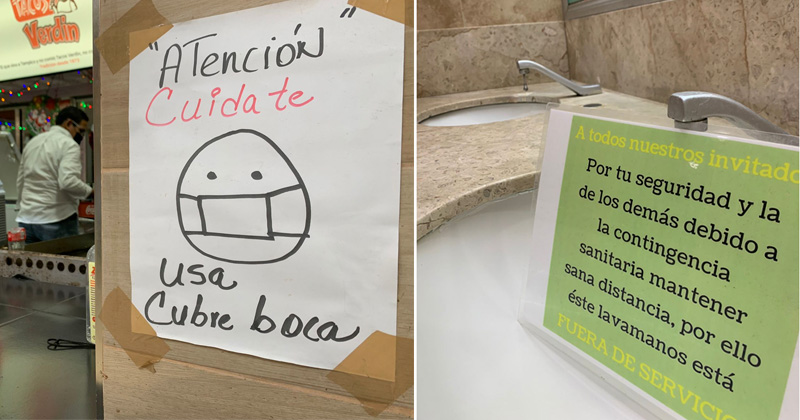 TACOS
Verdin
"ATención"
Cuidate
usa
Cubre boca
A todos nuestros invitado
Por tu seguridad y la
de los demás debido a
la contingencia
sanitaria mantener
sana distancia, por ello
éste lavamanos está
FUERA DE SERVICIO